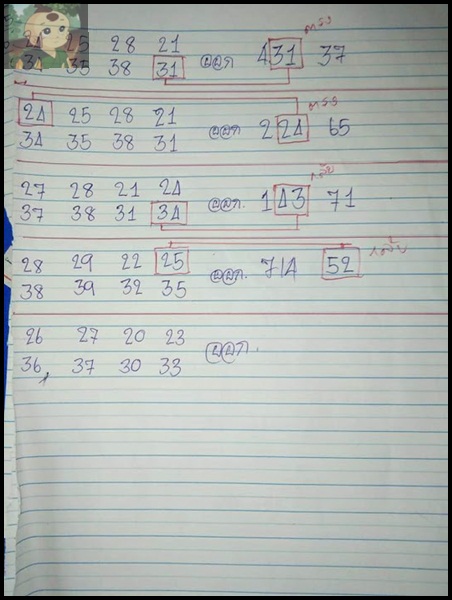 24 25 28 21
34 35 38 31 ออก 431 37 ตรง
24 25 28 21
34 35 38 31 ออก 224 65 ตรง
27 28 21 24
37 38 31 34 ออก. 143 71 กลับ
28 29 22 25
38 39 32 35 ออก. 714 52 กลับ
26 27 20 23
36 37 30 33 ออก.